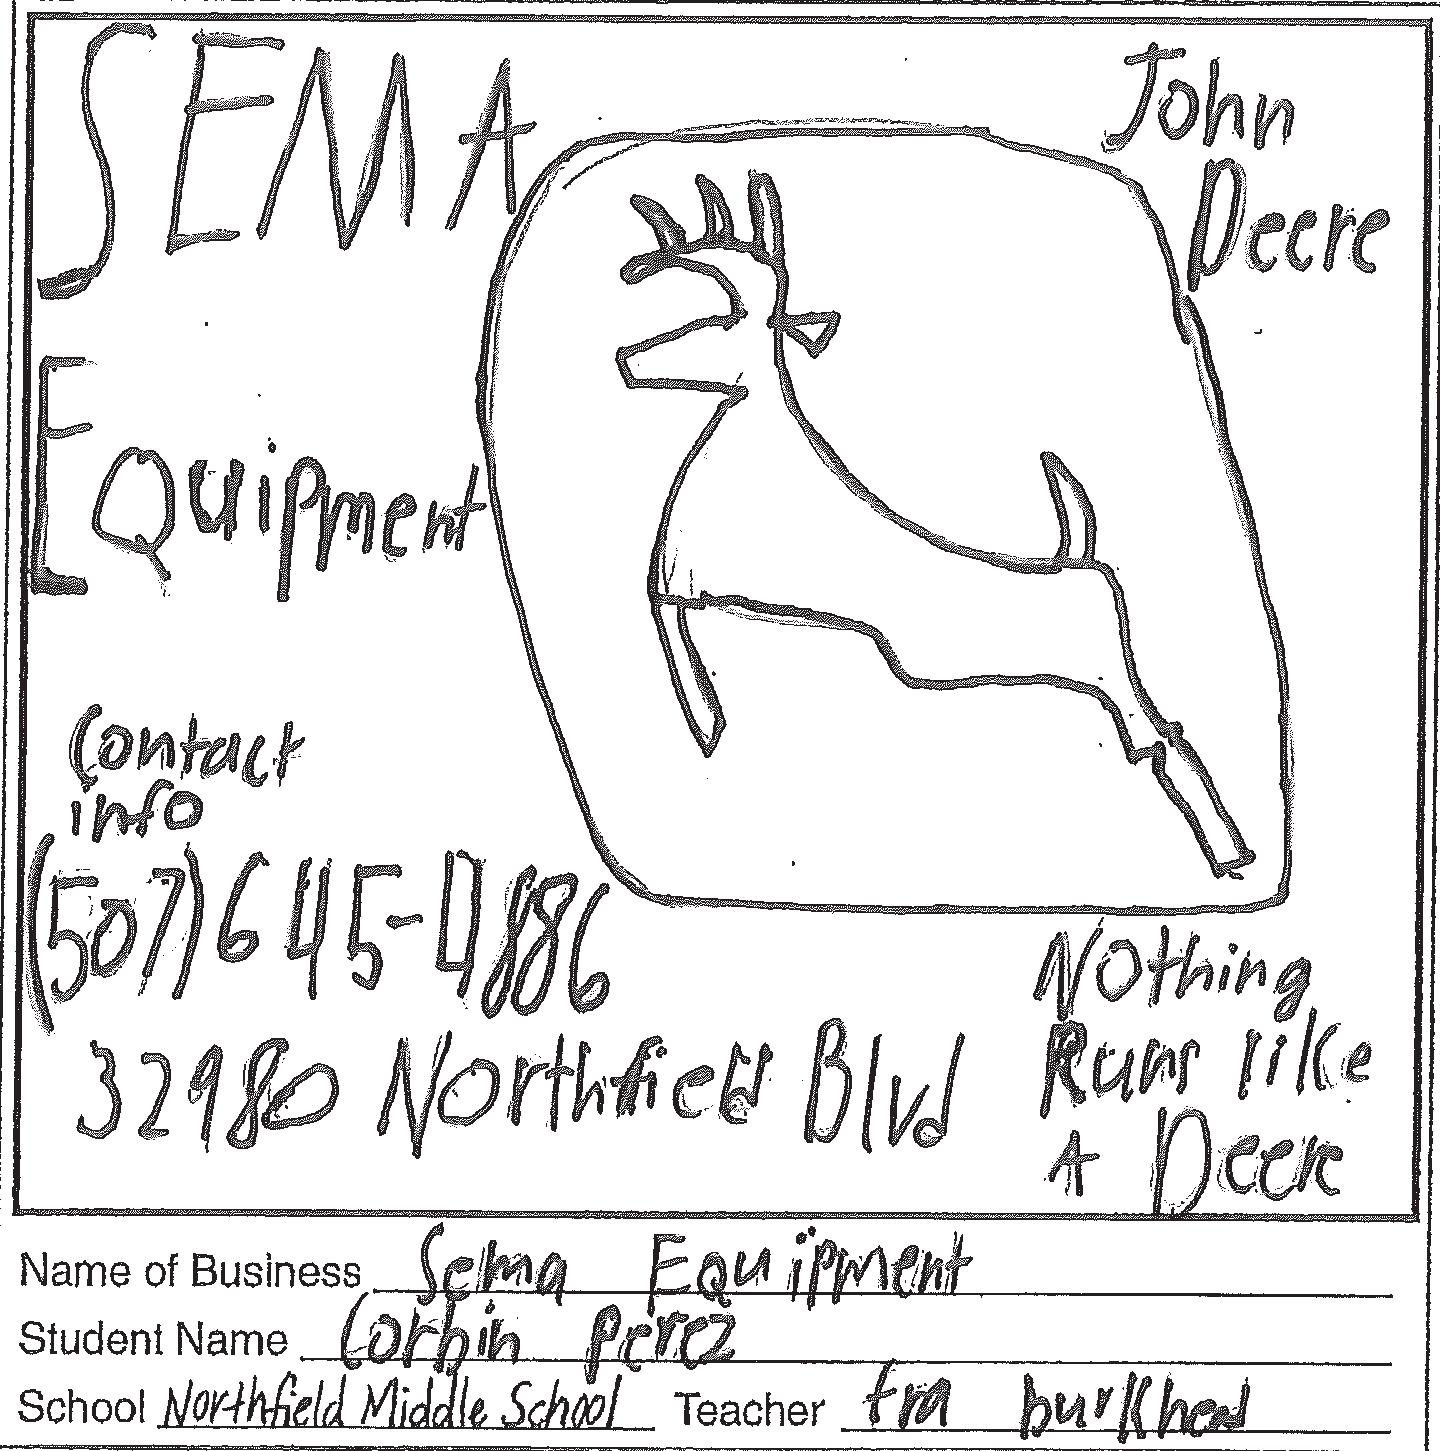 SEMA
Equipment
John
Deere
Contact
info
(507) 645-4886
32980 Northfield Blvd
Nothing
Runs like
A Deere
Name of Business Sema Equipment
Student Name Corbin Perez
School Northfield Middle School Teacher fra burkhead